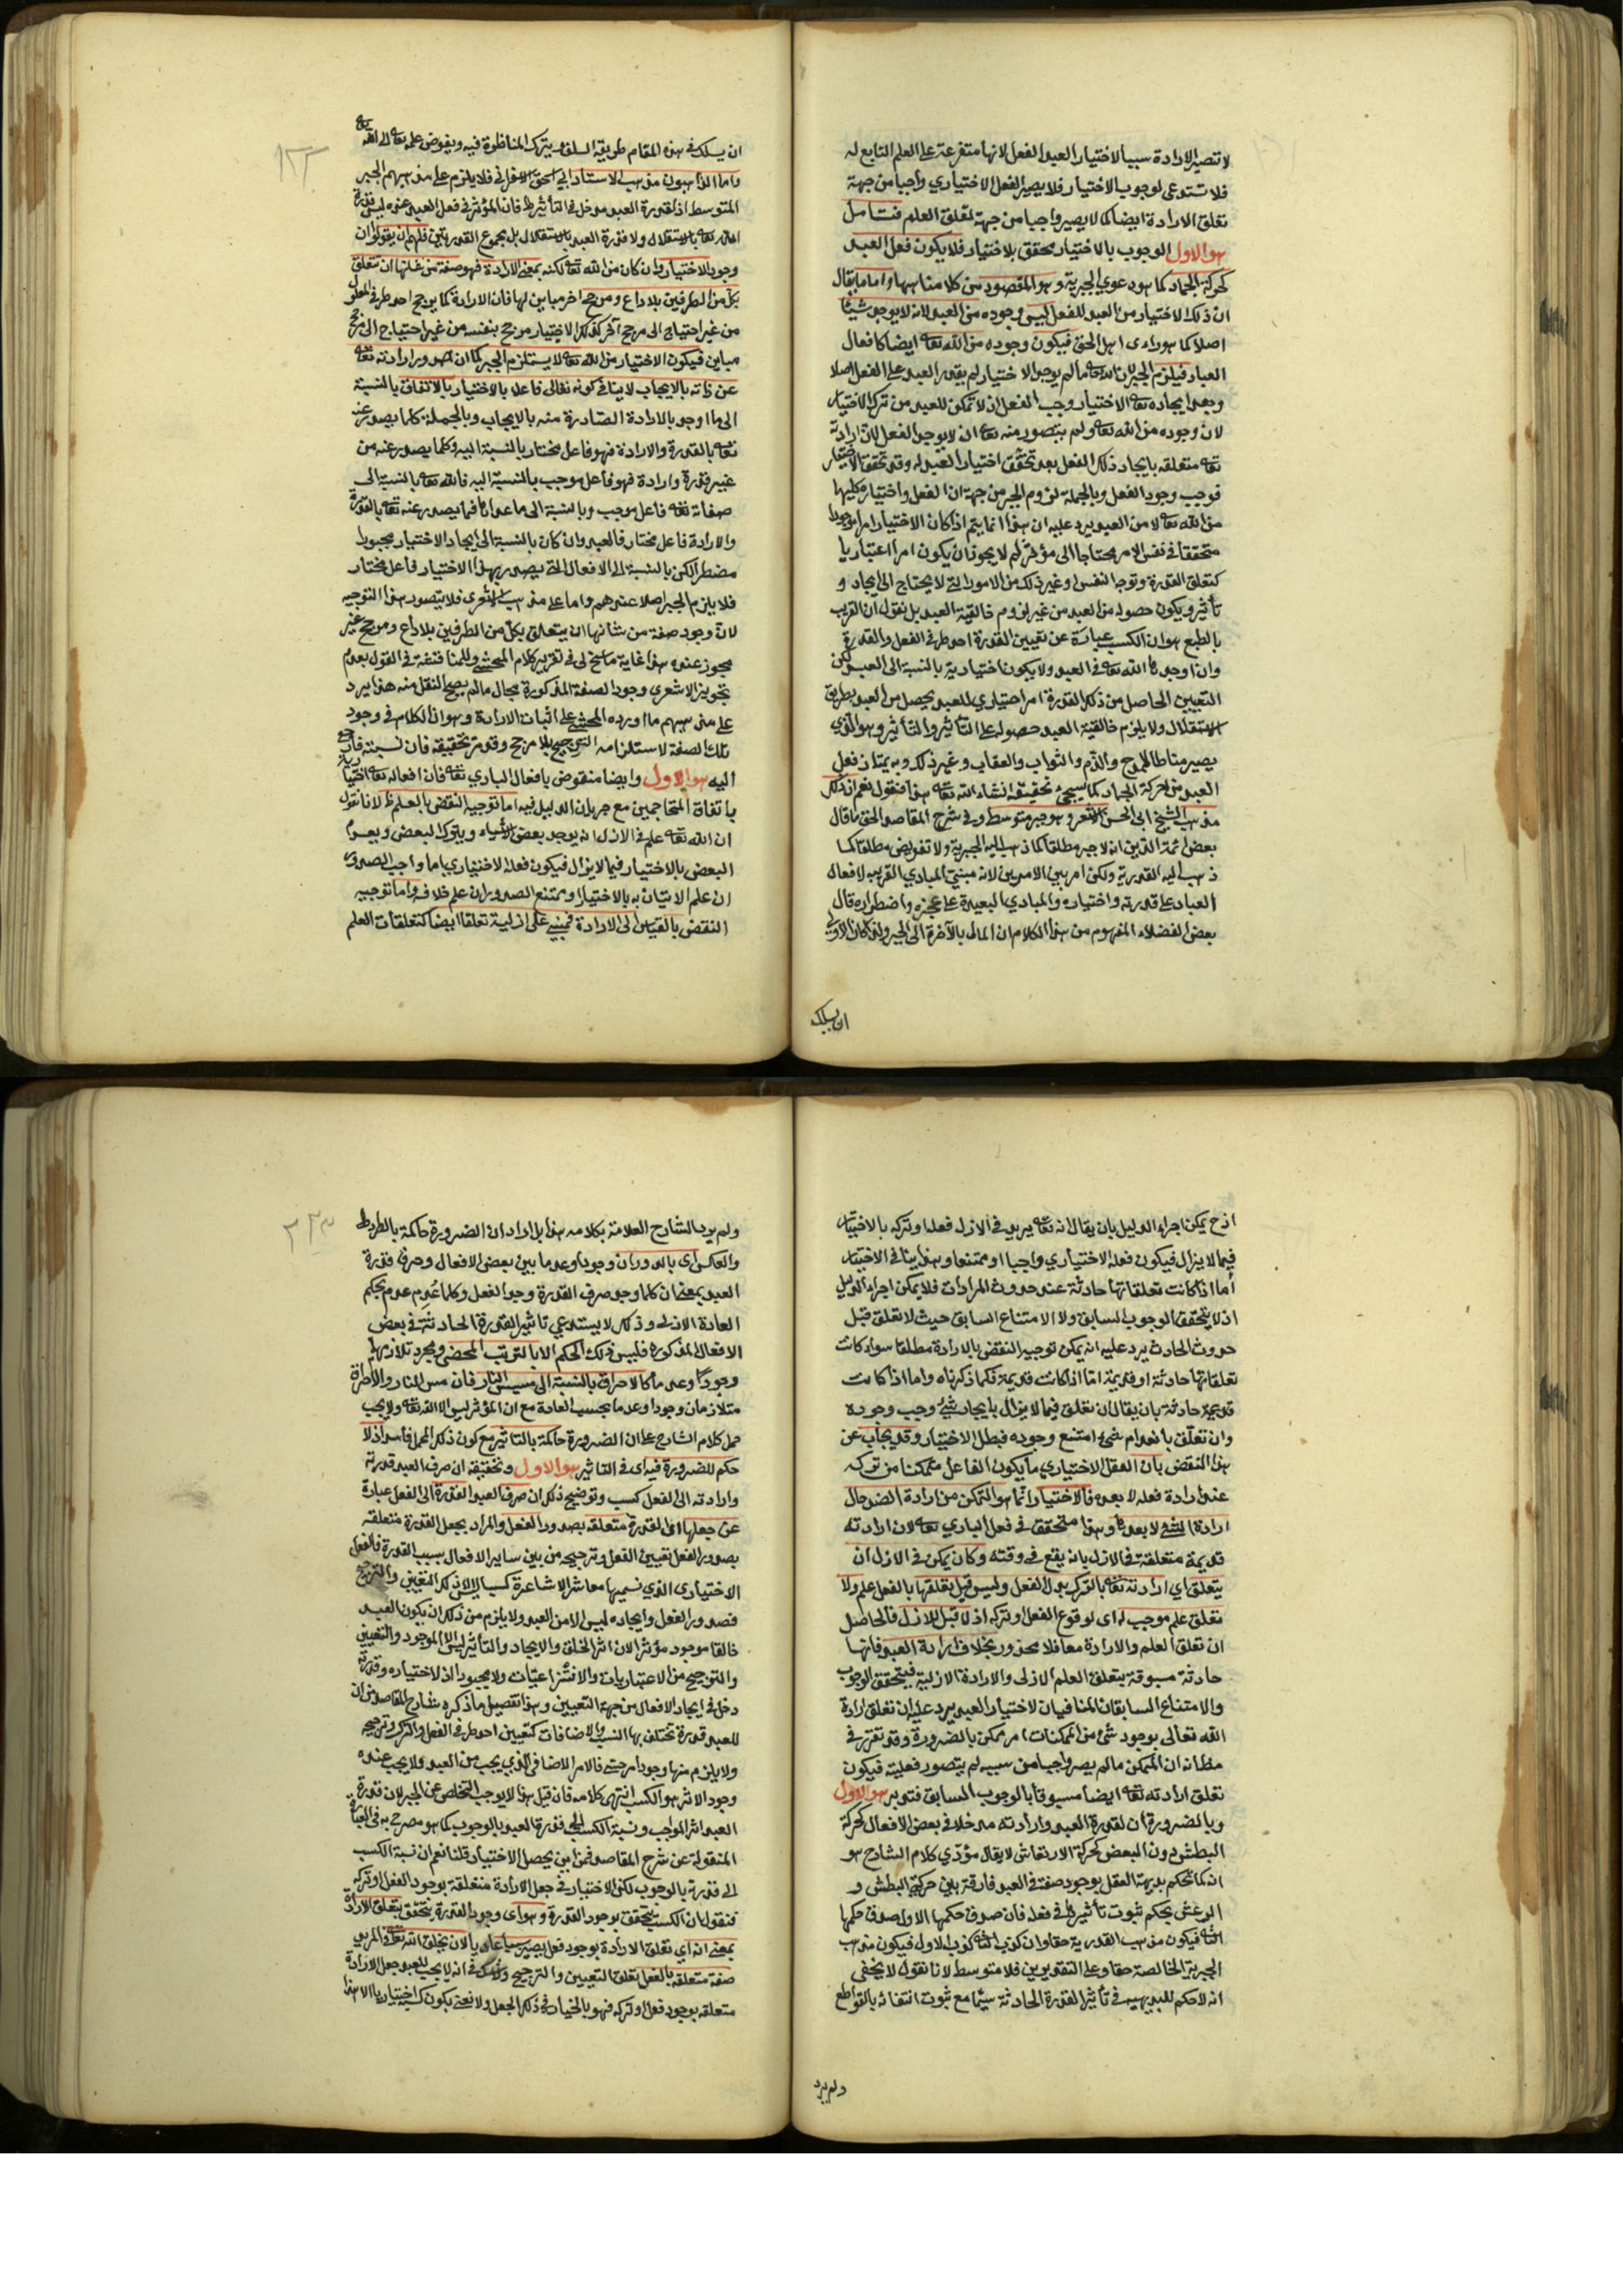 لا تصير الارادة سببا لاختيار العبد الفعل لانها متفرعة على العلم التابع له
فلا تستدعى لوجوب الاختيار فلا يصير الفعل الاختياري واجبا من جهة
تعلق الارادة ايضا كما لا يصير واجبا من جهة تعلق العلم فتامل
هو الاول الوجوب بالاختيار محقق بلا اختيار فلا يكون فعل العبد
كحركة الجماد كما هو دعوي الجبرية وهو المقصود من كلامنا هنا واما ما يقال
ان ذلك الاختيار من العبد للفعل ليس وجوده من العبد لانه لا يوجد شيئا
اصلا كما هو راى اهل الحق فيكون وجوده من الله تعه ايضا كافعال
العباد فيلزم الجبر لان الله تعه ما لم يوجد الاختيار لم يقدر العبد على الفعل اصلا
وبعد ايجاده تعه الاختيار وجب الفعل اذ لا تمكن للعبد من ترك الاختيار
لان وجوده من الله تعه ولم يتصور منه تعه ان لا يوجد الفعل لان ارادته
تعه متعلقه بايجاد ذلك الفعل بعد تحقق اختيار العبد له وقد تحقق الاختيار
فوجب وجود الفعل وبالجملة لزوم الجبر من جهة ان الفعل واختياره كليهما
من الله تعه لا من العبد يرد عليه ان هذا انما يتم اذا كان الاختيار امرا موجودا
متحققا فى نفس الامر محتاجا الى مؤثر لم لا يجوز ان يكون امرا اعتباريا
كتعلق القدرة وتوجه النفس وغير ذلك من الامور التى لا يحتاج الى ايجاد و
تأثير ويكون حصوله من العبد من غير لزوم خالقية العبد بل نقول ان القريب
بالطبع هو ان الكسب عبارة عن تعيين القدرة احد طرفى الفعل والقدرة
وان اوجدها الله تعه فى العبد ولا يكون اختيارية بالنسبة الى العبد لكن
التعيين الحاصل من ذلك القدرة امر اختياري للعبد يحصل من العبد بطريق
الاستقلال ولا يلزم خالقية العبد حصوله على التأثير والتأثر وهو الذي
يصير مناطا للمدح والذم والثواب والعقاب وغير ذلك وبه يمتاز فعل
العبد من حركة الجماد كما سيجئ تحقيقه انشاء الله تعه هذا فنقول نعم ان ذلك
مذهب الشيخ ابى الحسن الاشعرى وهو جبر متوسط وفى شرح المقاصد الحق ما قال
بعض ائمة الدين انه لا جبر مطلقا كما ذهب اليه الجبرية ولا تفويض مطلقا كما
ذهب اليه القدرية ولكن امر بين الامرين لانه مبنى المبادي القريبه لافعال
العباد على قدرته واختياره والمبادي البعيدة على عجزه واضطراره قال
بعض الفضلاء المفهوم من هذا الكلام ان المال بالآخرة الى الجبر ولذا كان الاولى
ان يسلك
ان يسلك فى هذه المقام طريقة السلف ويترك المناظرة فيه ويفوض علمه تعه الى الله
واما الذاهبون مذهب الاستاد ابي اسحق الاسفرانى فلا يلزم على مذهبهم الجبر
المتوسط اذ لقدرة العبد مدخل فى التأثير فان المؤثر فى فعل العبد عنده ليس قدرة
الله تعه بالاستقلال ولا قدرة العبد بالاستقلال بل مجموع القدرتين فلهم ان يقولوا ان
وجود الاختيار وان كان من الله تعه لكنه بمعنى الارادة فهو صفة من شانها ان تتعلق
بكل من الطرفين بلا داع ومرجح اخر مباين لها فان الارادة كما يرجح احد طرفى المعلول
من غير احتياج الى مرجح آخر كذلك الاختيار مرجح بنفسه من غير احتياج الى مرجح
مباين فيكون الاختيار من الله تعه لا يستلزم الجبر كما ان صدور ارادته تعه
عن ذاته بالايجاب لا ينافى كونه تعالى فاعلا بالاختيار بالاتفاق بالنسبة
الى ما اوجد بالارادة الصادرة منه بالايجاب وبالجملة كلما يصدر عنه
تعه بالقدرة والارادة فهو فاعل مختار بالنسبة اليه وكلما يصدر عنه من
غير قدرة وارادة فهو فاعل موجب بالنسبة اليه فالله تعه بالنسبة الى
صفاته تعه فاعل موجب وبالنسبة الى ما عداها فيما يصدر عنه تعه بالقدرة
والارادة فاعل مختار فالعبد وان كان بالنسبة الى ايجاد الاختيار مجبورا
مضطرا لكن بالنسبة الى الافعال التى يصدر بهذا الاختيار فاعل مختار
فلا يلزم الجبر اصلا عندهم واما على مذهب الاشعرى فلا يتصور هذا التوجيه
لان وجود صفة من شانها ان يتعلق بكل من الطرفين بلا داع ومرجح غير
مجوز عنده هذا غاية ما سنح لى فى تقرير كلام المحشى وللمناقشة فى القول بعدم
تجويز الاشعرى وجود الصفة المذكورة مجال ما لم يصح النقل منه هذا يرد
على مذهبهم ما اورده المحشى على اثبات الارادة وهو ان الكلام فى وجود
تلك الصفة لاستلزامه الترجيح بلا مرجح وقد مر تحقيقه فان نسبته فارجع
اليه هو الاول وايضا منقوض بافعال الباري تعه فان افعاله تعه اختيارية
باتفاق المتخاصمين مع جريان الدليل فيه اما توجيه النقض بالعلم ظ لانا نقول
ان الله تعه علم فى الازل انه يوجد بعض الاشياء ويترك البعض ويعدم
البعض بالاختيار فيما لا يزال فيكون فعله الاختياري اما واجب الصدور
ان علم الاتيان به بالاختيار او ممتنع الصدور ان علم خلافه واما توجيه
النقض بالقياس الى الارادة فمبنى على ازلية تعلقها ايضا كتعلقات العلم
اذ ح يمكن اجراء الدليل بان يقال انه تعه يريد فى الازل فعله او تركه بالاختيار
فيما لا يزال فيكون فعله الاختياري واجبا او ممتنعا وهذا ينافى الاختيار
أما اذا كانت تعلقاتها حادثة عند حدوث المرادات فلا يمكن اجراء الدليل
اذ لا يتحقق الوجوب السابق ولا الامتناع السابق حيث لا تعلق قبل
حدوث الحادث يرد عليه انه يمكن توجيه النقض بالارادة مطلقا سواء كانت
تعلقاتها حادثة او قديمة اما اذا كانت قديمة فكما ذكرناه واما اذا كانت
حادثة بان يقال ان تعلق فيما لا يزال بايجاد شئ وجب وجوده
وان تعلق بانعدام شئ امتنع وجوده فبطل الاختيار وقد يجاب عن
هذا النقض بان الفعل الاختياري ما يكون الفاعل متمكنا من تركه
عند ارادة فعله لا بعده فالاختيار انما هو التمكن من ارادة الضد حال
ارادة الشئ لا بعدها وهذا متحقق فى فعل الباري تعه لان ارادته
قديمة متعلقة فى الازل بانه يقع فى وقته وكان يمكن فى الازل ان
يتعلق اي ارادته تعه بالترك بدل الفعل وليس قبل تعلقها بالفعل علم ولا
تعلق علم موجب له اى لوقوع الفعل او تركه اذ لا قبل للازل فالحاصل
ان تعلق العلم والارادة معا فلا محذور بخلاف ارادة العبد فانها
حادثة مسبوقة بتعلق العلم الازلى والارادة الازلية فيتحقق الوجوب
والامتناع السابقان المنافيان لاختيار العبد يرد عليه ان تعلق ارادة
الله تعالى بوجود شئ من الممكنات امر ممكن بالضرورة وقد تقرر فى
مظانه ان الممكن ما لم يصر واجبا من سببه لم يتصور فعليته فيكون
تعلق ارادته تعه ايضا مسبوقا بالوجوب السابق فتدبر هو الاول
وبالضرورة ان لقدرة العبد وارادته مدخلا فى بعض الافعال كحركة
البطش دون البعض كحركة الارتعاش لا يقال مؤدي كلام الشارح هو
انه كما تحكم بديهة العقل بوجود صفة فى العبد فارقة بين حركتي البطش و
الرعش يحكم ثبوت تأثيرها فى فعله فان صدق حكمها الاول صدق حكمها
الثانى فيكون مذهب القدرية حقا وان كذب الثانى كذب الاول فيكون مذهب
الجبرية الخالصة حقا وعلى التقديرين فلا متوسط لانا نقول لا يخفى
انه لا حكم للبديهيه فى تأثير القدرة الحادثة سيما مع ثبوت انتفائه بالقواطع
ولم يرد
ولم يرد الشارح العلامة بكلامه هذا بل اراد ان الضرورة حاكمة بالطرد
والعكس اى بالدوران وجودا وعدما بين بعض الافعال وصرف قدرة
العبد بمعنى ان كلما وجد صرف القدرة وجد الفعل وكلما عدم عدم بحكم
العادة الازلى وذلك لا يستدعي تاثير القدرة الحادثة فى بعض
الافعال المذكوره فليس ذلك الحكم الا بالترتب المحض ومجرد تلازمهما
وجودا وعدما كالاحراق بالنسبة الى مسيس النار فان مس النار والاحراق
متلازمان وجودا وعدما بحسب العادة مع ان المؤثر ليس الا الله تعه ولا يجب
حمل كلام الشارح على ان الضرورة حاكمة بالتاثير مع كون ذلك الحمل فاسدا اذ لا
حكم للضرورة فيه اى فى التاثير هو الاول وتحقيقه ان صرف العبد قدرته
وارادته الى الفعل كسب وتوضيح ذلك ان صرف العبد القدرة الى الفعل عبارة
عن جعلها اى القدرة متعلقه بصدور الفعل والمراد بجعل القدرة متعلقه
بصدور الفعل تعيين الفعل وترجيحه من بين سائر الافعال بسبب القدرة فالفعل
الاختيارى الذي نسميها معاشر الاشاعرة كسبا ليس الا ذلك التعيين والترجيح
فصدور الفعل وايجاده ليس الا من العبد ولا يلزم من ذلك ان يكون العبد
خالقا موجود مؤثر الان اثر الخلق والايجاد والتأثير ليس الا الموجود والتعيين
والترجيح من الاعتباريات والانتزاعيات ولا مجبورا اذ لاختياره وقدرته
دخل فى ايجاد الافعال من جهة التعيين وهذا تفصيل ما ذكره شارح المقاصد من ان
للعبد قدرة تختلف بها النسب والاضافات كتعيين احد طرفى الفعل والترك وترجيحه
ولا يلزم منها وجود امر حقيقى فالامر الاضافى الذي يجب من العبد ولا يجب عنده
وجود الاثر هو الكسب انتهى كلامه فان قيل هذا لا يوجب التخلص عن الجبر لان قدرة
العبد اثر الموجب ونسبة الكسب الى قدرة العبد بالوجوب كما هو مصرح به فى العبارة
المنقولة عن شرح المقاصد فمن اين يحصل الاختيار قلنا نعم ان نسبة الكسب
الى قدرته بالوجوب لكن الاختيار فى جعل الارادة متعلقة بوجود الفعل او تركه
فنقول ان الكسب يتحقق بوجود القدرة وهو اى وجود القدرة يتحقق بتعلق الارادة
بمعنى انه اي تعلق الارادة بوجود فعل يصير سببا عاديا لان يخلق الله تعه فى المريد
صفة متعلقه بالفعل تعلق التعيين والترجيح ولا شك فى انه لا يجب للعبد جعل الارادة
متعلقه بوجود فعل او تركه فهو بالخيار فى ذلك الجعل ولا نعنى بكون كسبه اختياريا الا هذا